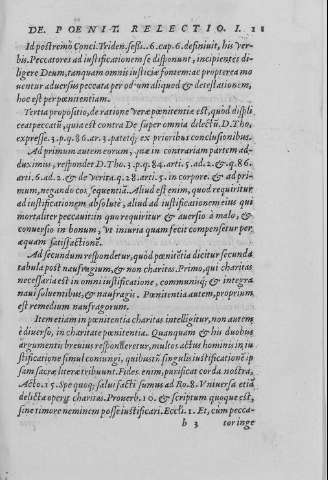 DE. POENIT. RELECTIO. I. 21
Id postremò Conci. Triden. sess. 6. cap. 6. definiuit, his ver-
bis. Peccatores ad iustificationem se disponunt, incipientes di-
ligere Deum, tanquam omnis iusticiæ fontem: ac propterea mo
uentur aduersus peccata per odium aliquod & detestationem,
hoc est per pœnitentiam.
Tertia propositio, de ratione veræ pœnitentiæ est, quòd displi
ceat peccatũ, quia est contra De super omnia delectũ. D. Tho.
expresse. 3. p. q. 86. ar. 3. patetq; ex prioribus conclusionibus.
Ad primum autem eorum, quæ in contrariam partem ad-
duximus, respondet D. Tho. 3. p. q. 84. arti. 5. ad. 2. & q. 86.
arti. 6. ad. 2. & de verita. q. 28. arti. 5. in corpore. & ad pri-
mum, negando consequentiã. Aliud est enim, quod requiritur
ad iustificationem absolutè, aliud ad iustificationem eius qui
mortaliter peccauit: in quo requiritur & auersio à malo, &
conuersio in bonum, vt iniuria quam fecit compensetur per
æquam satisfactionẽ.
Ad secundum respondetur, quòd pœnitẽtia dicitur secunda
tabula post naufragium, & non charitas. Primo, qui charitas
necessaria est in omni iustificatione, communisq; & integra
naui soluentibus, & naufragis. Pœnitentia autem, proprium
est remedium naufragorum.
Item etiam in pœnitentia charitas intelligitur, non autem
è diuerso, in charitate pœnitentia. Quanquam & his duobus
argumentis breuius respondetur, multos actus hominis in iu
stificatione simul coniungi, quibus singulis iustificationẽ ip
sam sacræ literæ tribuunt. Fides enim, purificat corda nostra,
Acto. 15. Spe quoq; salui facti sumus ad Ro. 8. Vniuersa etiã
delicta operit charitas. Prouerb. 10. & scriptum quoque est,
sine timore neminem posse iustificari. Eccli. 1. Et, cùm pecca-
b 3 tor inge